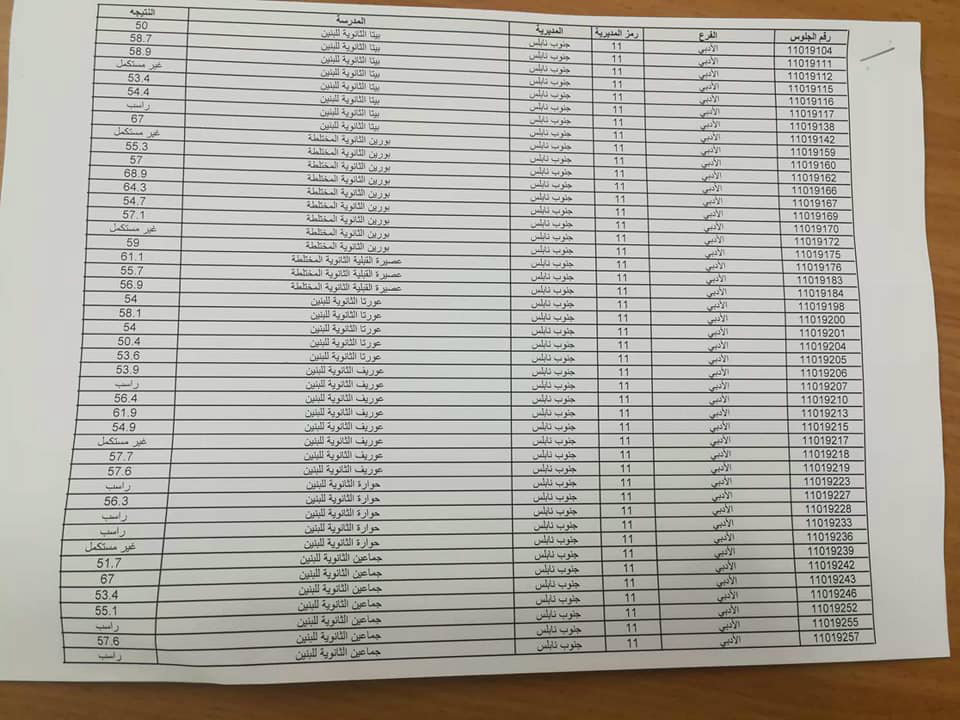 رقم الجلوس الفرع رمز المديرية المديرية المدرسة النتيجه
11019104 الأدبي 11 جنوب نابلس بيتا الثانوية للبنين 50
11019111 الأدبي 11 جنوب نابلس بيتا الثانوية للبنين 58.7
11019112 الأدبي 11 جنوب نابلس بيتا الثانوية للبنين 58.9
11019115 الأدبي 11 جنوب نابلس بيتا الثانوية للبنين غير مستكمل
11019116 الأدبي 11 جنوب نابلس بيتا الثانوية للبنين 53.4
11019117 الأدبي 11 جنوب نابلس بيتا الثانوية للبنين 54.4
11019138 الأدبي 11 جنوب نابلس بيتا الثانوية للبنين راسب
11019142 الأدبي 11 جنوب نابلس بيتا الثانوية للبنين 67
11019159 الأدبي 11 جنوب نابلس بورين الثانوية المختلطة غير مستكمل
11019160 الأدبي 11 جنوب نابلس بورين الثانوية المختلطة 55.3
11019162 الأدبي 11 جنوب نابلس بورين الثانوية المختلطة 57
11019166 الأدبي 11 جنوب نابلس بورين الثانوية المختلطة 68.9
11019167 الأدبي 11 جنوب نابلس بورين الثانوية المختلطة 64.3
11019169 الأدبي 11 جنوب نابلس بورين الثانوية المختلطة 54.7
11019170 الأدبي 11 جنوب نابلس بورين الثانوية المختلطة 57.1
11019172 الأدبي 11 جنوب نابلس بورين الثانوية المختلطة غير مستكمل
11019175 الأدبي 11 جنوب نابلس بورين الثانوية المختلطة 59
11019176 الأدبي 11 جنوب نابلس عصيرة القبلية الثانوية المختلطة 61.1
11019183 الأدبي 11 جنوب نابلس عصيرة القبلية الثانوية المختلطة 55.7
11019184 الأدبي 11 جنوب نابلس عصيرة القبلية الثانوية المختلطة 56.9
11019198 الأدبي 11 جنوب نابلس عورتا الثانوية للبنين 54
11019200 الأدبي 11 جنوب نابلس عورتا الثانوية للبنين 58.1
11019201 الأدبي 11 جنوب نابلس عورتا الثانوية للبنين 54
11019204 الأدبي 11 جنوب نابلس عورتا الثانوية للبنين 50.4
11019205 الأدبي 11 جنوب نابلس عورتا الثانوية للبنين 53.6
11019206 الأدبي 11 جنوب نابلس عوريف الثانوية للبنين 53.9
11019207 الأدبي 11 جنوب نابلس عوريف الثانوية للبنين راسب
11019210 الأدبي 11 جنوب نابلس عوريف الثانوية للبنين 56.4
11019213 الأدبي 11 جنوب نابلس عوريف الثانوية للبنين 61.9
11019215 الأدبي 11 جنوب نابلس عوريف الثانوية للبنين 54.9
11019217 الأدبي 11 جنوب نابلس عوريف الثانوية للبنين غير مستكمل
11019218 الأدبي 11 جنوب نابلس عوريف الثانوية للبنين 57.7
11019219 الأدبي 11 جنوب نابلس عوريف الثانوية للبنين 57.6
11019223 الأدبي 11 جنوب نابلس حوارة الثانوية للبنين راسب
11019227 الأدبي 11 جنوب نابلس حوارة الثانوية للبنين 56.3
11019228 الأدبي 11 جنوب نابلس حوارة الثانوية للبنين راسب
11019233 الأدبي 11 جنوب نابلس حوارة الثانوية للبنين راسب
11019236 الأدبي 11 جنوب نابلس حوارة الثانوية للبنين غير مستكمل
11019239 الأدبي 11 جنوب نابلس جماعين الثانوية للبنين 51.7
11019242 الأدبي 11 جنوب نابلس جماعين الثانوية للبنين 67
11019243 الأدبي 11 جنوب نابلس جماعين الثانوية للبنين 53.4
11019246 الأدبي 11 جنوب نابلس جماعين الثانوية للبنين 55.1
11019252 الأدبي 11 جنوب نابلس جماعين الثانوية للبنين راسب
11019255 الأدبي 11 جنوب نابلس جماعين الثانوية للبنين 57.6
11019257 الأدبي 11 جنوب نابلس جماعين الثانوية للبنين راسب